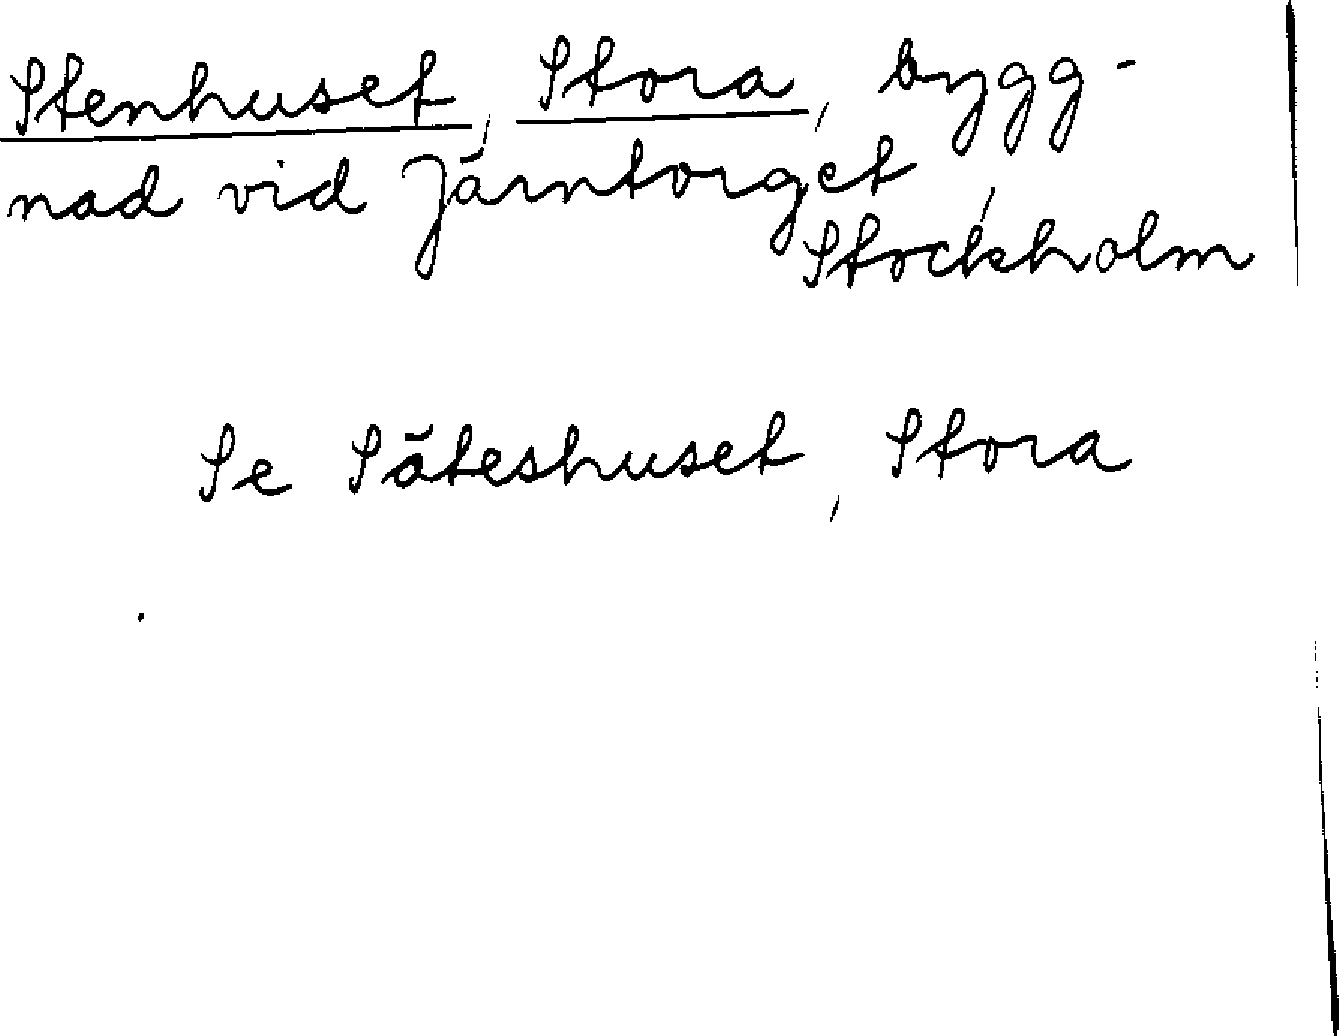 Stenhuset, Stora, bygg-
nad vid Järntorget,
Stockholm
Se Säteshuset, Stora